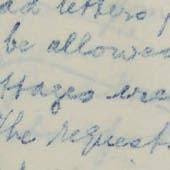 ad letters
be allowed
ttages were
The request